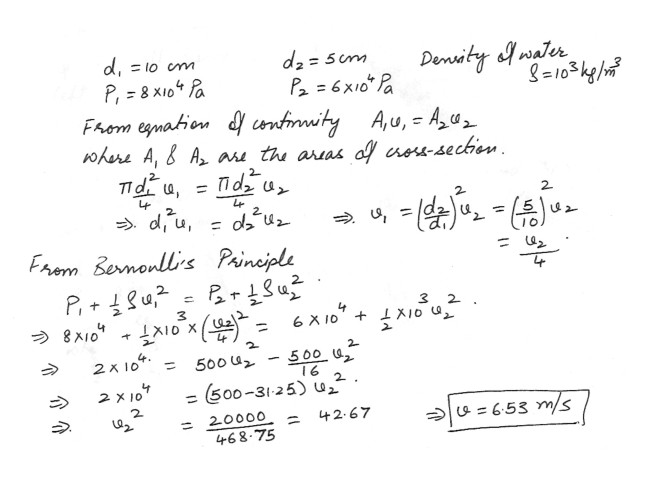 d₁ = 10 cm d₂ = 5 cm Density of water
P₁ = 8 x10⁴ Pa P₂ = 6 x10⁴ Pa ρ = 10³ kg/m³
From equation of continuity A₁v₁ = A₂v₂
where A₁ & A₂ are the areas of cross-section.
πd₁²/4 v₁ = πd₂²/4 v₂
⇒. d₁²v₁ = d₂²v₂ ⇒. v₁ = (d₂/d₁)² v₂ = (5/10)² v₂
= v₂/4 .
From Bernoulli's Principle
P₁ + ½ ρv₁² = P₂ + ½ ρv₂² .
⇒ 8 x10⁴ + ½ x10³ x (v₂/4)² = 6 x 10⁴ + ½ x10³ v₂² .
⇒ 2 x 10⁴. = 500 v₂² - 500/16 v₂²
⇒ 2 x 10⁴ = (500-31.25) v₂² .
⇒. v₂² = 20000/468.75 = 42.67 ⇒ v = 6.53 m/s